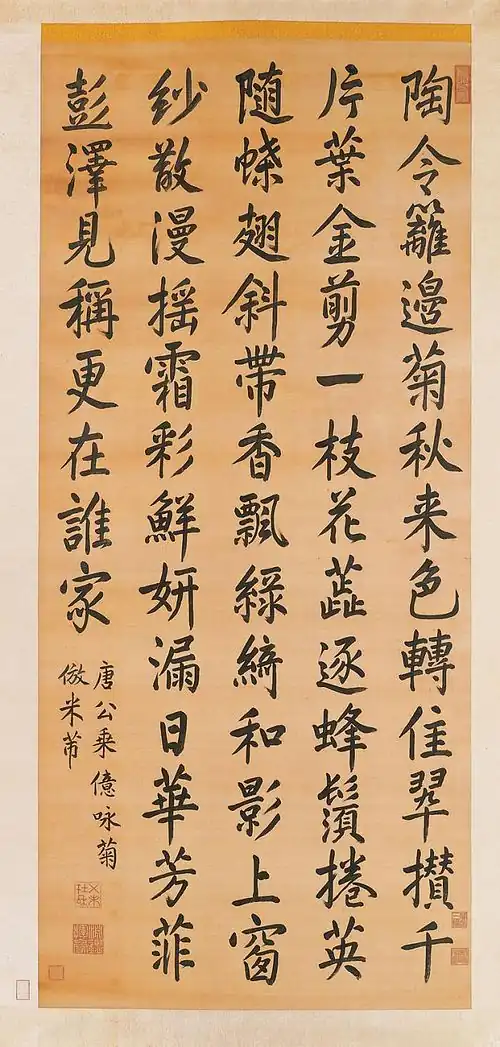 陶令籬邊菊秋来色轉佳翠攢千
片葉金剪一枝花蕋逐蜂鬚捲英
随蝶翅斜帶香飄綠綺和影上窗
紗散漫揺霜彩鮮妍漏日華芳菲
彭澤見稱更在誰家
唐公乘億咏菊
倣米芾